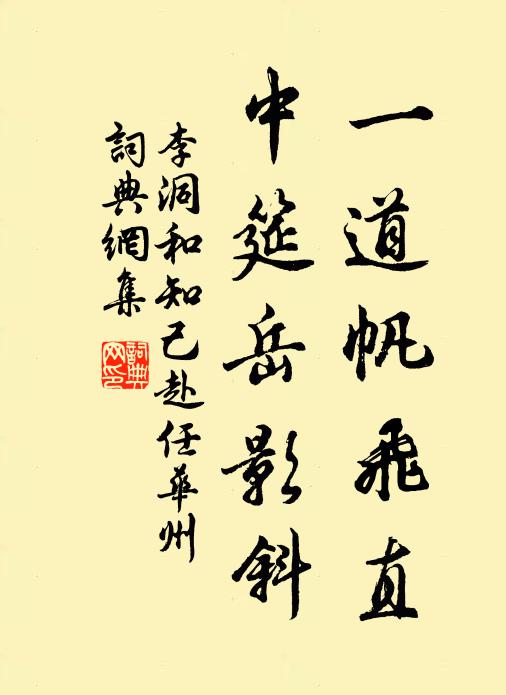 一道帆飛直
中筵岳影斜
李洞和知己赴任華州
詞典網集
詞典網印